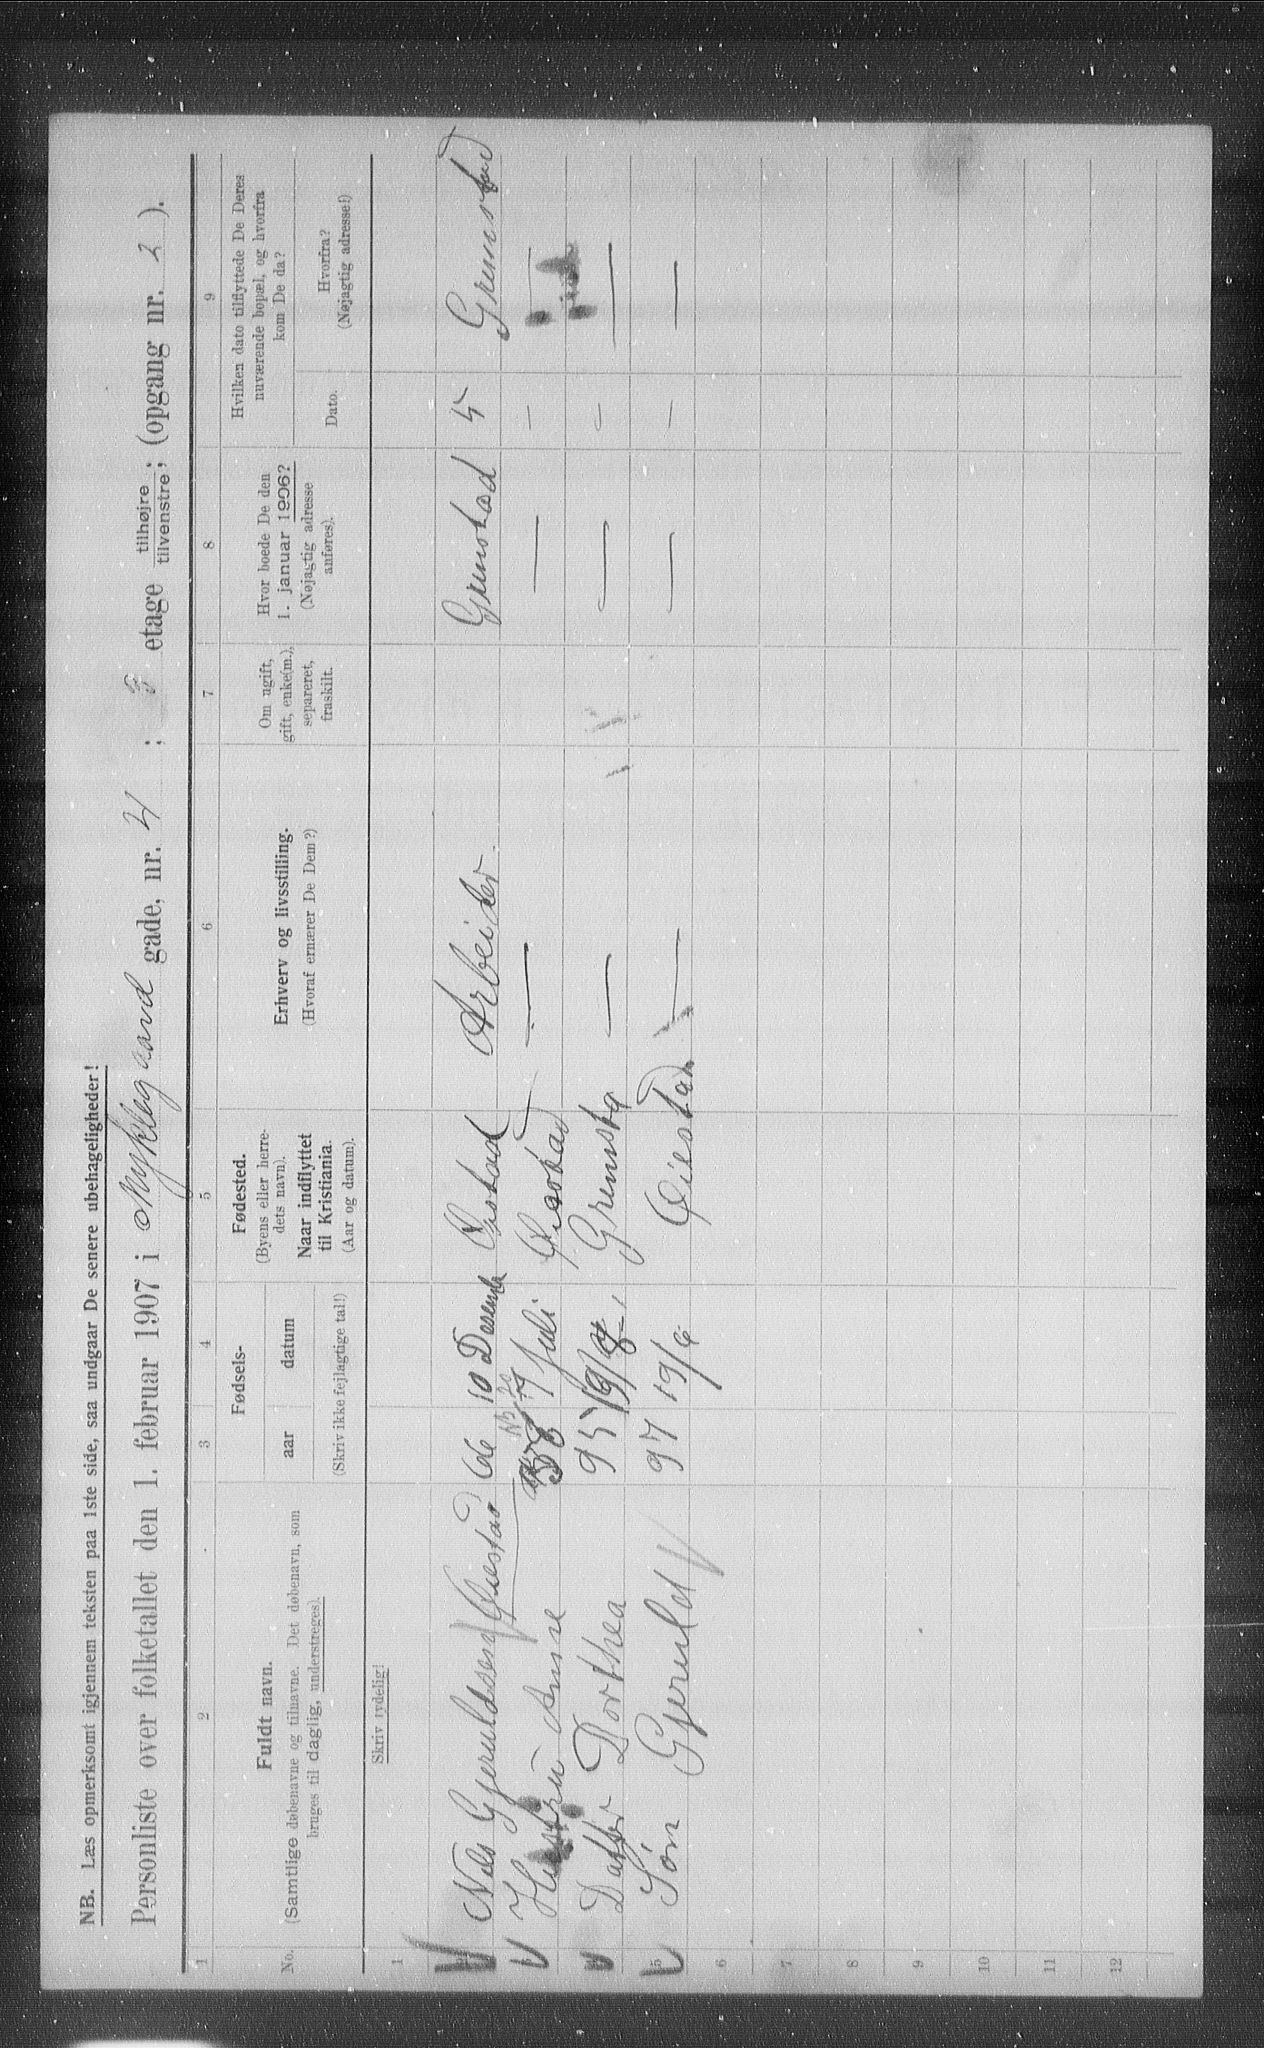 NB. Læs opmerksomt igjennem teksten paa 1ste side, saa undgaar De senere ubehageligheder!
Personliste over folketallet den 1. februar 1907 i Nyklegaard gade, nr. 4 ; etage tilhøjre / tilvenstre; (opgang nr. 2 ).
1 2 3 4 5 6 7 8 9
No.
Fuldt navn.
(Samtlige døbenavne og tilnavne. Det døbenavn, som
bruges til daglig, understreges).
Fødsels-
aar datum
(Skriv ikke fejlagtige tal!)
Fødested.
(Byens eller herre-
dets navn).
Naar indflyttet
til Kristiania.
(Aar og datum).
Erhverv og livsstilling.
(Hvoraf ernærer De Dem?)
Om ugift,
gift, enke(m.),
separeret,
fraskilt.
Hvor boede De den
1. januar 1906?
(Nøjagtig adresse
anføres).
Hvilken dato tilflyttede De Deres
nuværende bopæl, og hvorfra
kom De da?
Dato.
Hvorfra?
(Nøjagtig adresse!)
Skriv tydelig!
1
Nils Gjeruldsen Øiestad 66 10 Desemb Øiestad Arbeider Grimstad 5 Grimstad
Hustru Anne Juli Øiestad — — — —
Datter Dorthea 95 Grimsta — — — —
5 Søn Gjeruld 97 19/6 Øiestad — — — —
6
7
8
9
10
11
12